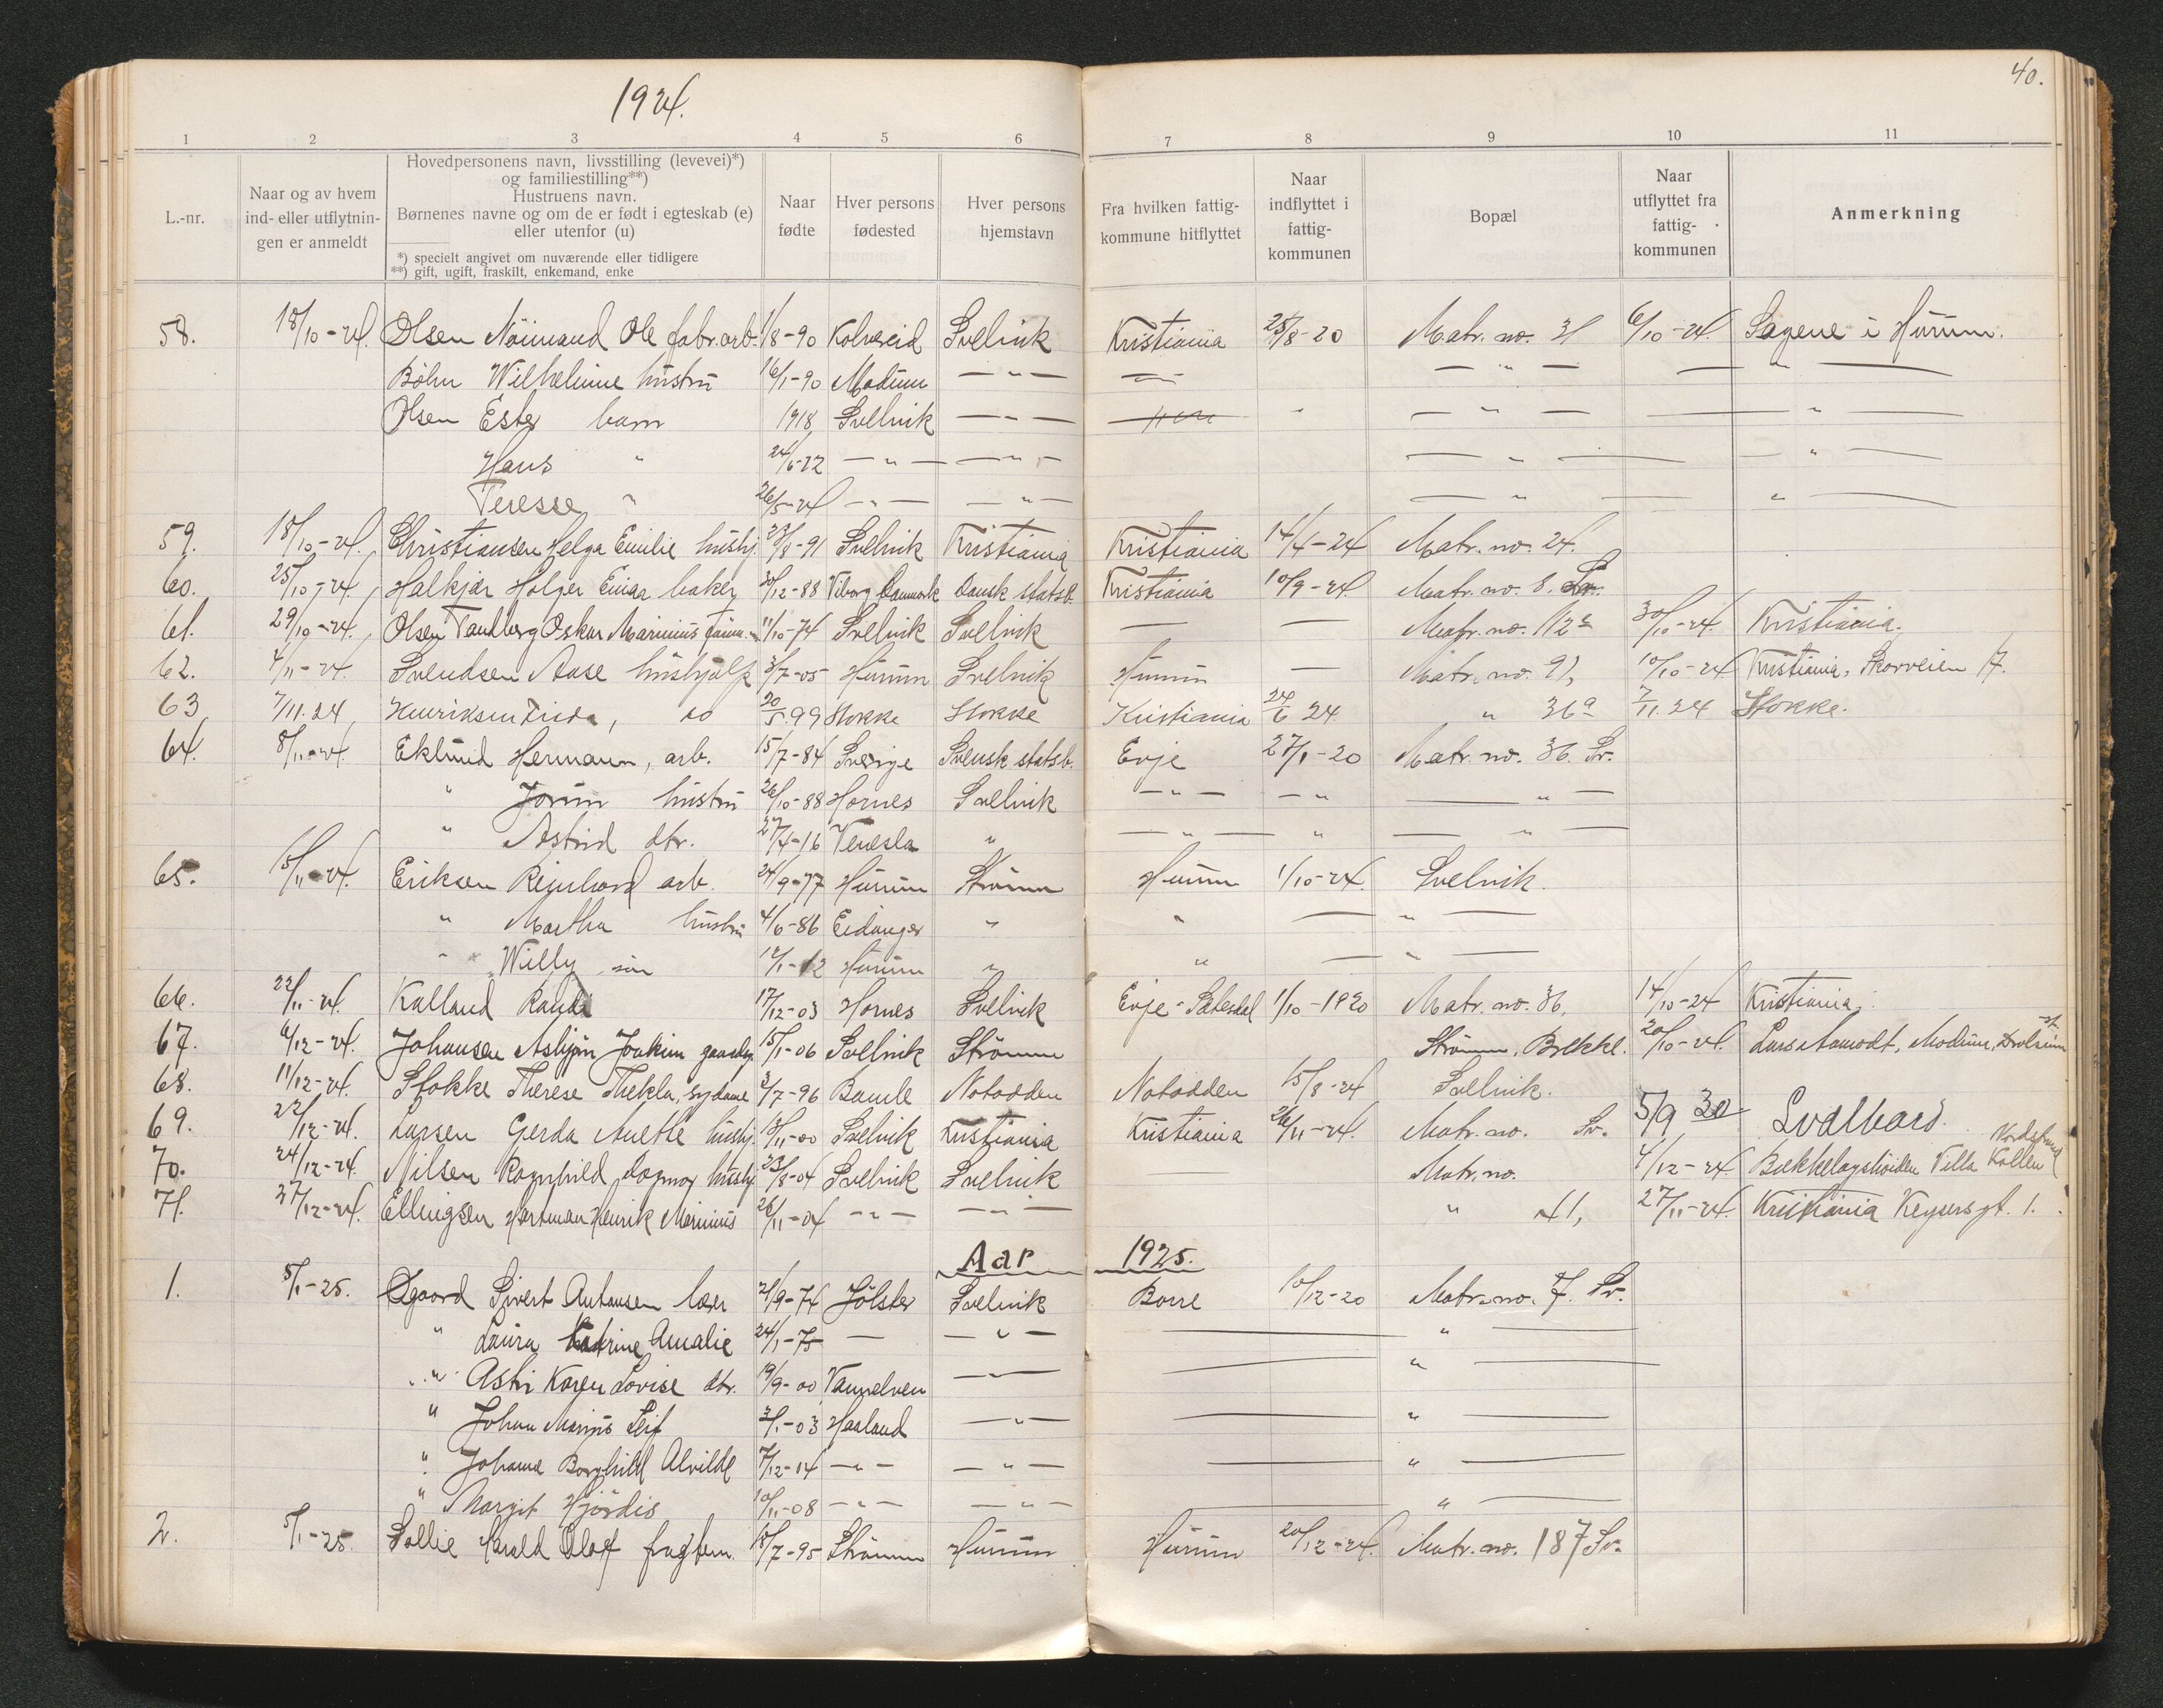 1924.
40.
1 2 3 4 5 6 7 8 9 10 11
L.-nr.
Naar og av hvem
ind- eller utflytnin-
gen er anmeldt
Hovedpersonens navn, livsstilling (levevei)*)
og familiestilling**)
Hustruens navn.
Børnenes navne og om de er født i egteskab (e)
eller utenfor (u)
*) specielt angivet om nuværende eller tidligere
**) gift, ugift, fraskilt, enkemand, enke
Naar
fødte
Hver persons
fødested
Hver persons
hjemstavn
Fra hvilken fattig-
kommune hitflyttet
Naar
indflyttet i
fattig-
kommunen
Bopæl
Naar
utflyttet fra
fattig-
kommunen
Anmerkning
58. 18/10-24. Olsen Ole fabr.arb. 1/8-90 Kolvereid Svelvik Kristiania 28/8-20 Matr. no. 31 6/10-24. Sagene i Hurum.
Bøhn Wilhelmine hustru 16/1-90 Modum — " — — " — — " —
Olsen Ester barn 1918 Svelvik — " — " — " — — " —
Hans " 24/6-22 — " — — " — — " — — " —
Teresse " 26/5-24 — " — — " — — " — — " —
59. 18/10-24. Christiansen Helga Emilie hushj. 23/8-91 Svelvik Kristiania Kristiania 14/4-24 Matr. no. 24.
60. 25/10-24. Halkjær Holger Einar baker 30/12-88 Viborg Danmark Dansk statsb. Kristiania 10/9-24. Matr. no. 8. Sv.
61. 29/10-24. Olsen Tandberg Oskar Marinius 11/10-74 Svelvik Svelvik — — Matr. no. 112 30/10-24. Kristiania.
62. 4/11-24. Svendsen Aase hushjälp 3/7-05 Hurum Svelvik Hurum — Matr. no. 91, 10/10-24 Kristiania, Skovveien 17.
63 7/11.24 Henriksen Frida, do 20/5.99 Stokke Stokke Kristiania 24/6 24 " 36a 7/11.24 Stokke.
64. 8/11-24. Eklund Hermann, arb. 15/7-84 Sverige Svensk statsb. Evje 27/1-20 Matr. no. 36. Sv.
" Jorun hustru 26/10-88 Hornes Svelvik — " — — " — " —
" Astrid dtr. 27/4-16 Venesla " — " — " — " —
65. 15/11-24. Eriksen Reinhard arb. 24/9-77 Hurum Strømm Hurum 1/10-24. Svelvik.
" Martha hustru 4/6-86 Eidanger " " — " —
" Willy sön 12/1-12 Hurum " " — " —
66. 22/11-24. Kalland Randi 17/12-03 Hornes Svelvik Evje - Sætesdal 1/10-1920 Matr. no. 36. 14/10-24 Kristiania.
67. 6/12-24. Johansen Asbjørn Joakim 15/1-06 Svelvik Strömm Strømm, Brekke. 20/10-24. Lars Aamodt, Modum, Drolsum st.
68. 11/12-24. Stokke Therese Thekla, sydame 3/7-96 Bamle Notodden Notodden 15/8-24 Svelvik.
69. 22/12-24. Larsen Gerda Anette hushj. 13/11-00 Svelvik Kristiania Kristiania 26/11-24. Matr. no. Sv. 5/9 30 Svalbard.
70. 24/12-24. Nilsen Ragnhild Dagmar hushj 23/8-04 Svelvik Svelvik — Matr. no. 4/12-24. Bækkelagshøiden Villa Kollen Nordstrand
71. 27/12-24. Ellingsen Hartman Henrik Marinius 26/11-04 — " — — " — " 41, 27/11-24. Kristiania Keysersgt. 1.
Aar 1925.
1. 5/1-25. Øgaard Sivert Antonsen lærer 21/9-74 Jölster Svelvik Borre 10/12-20 Matr. no. 7. Sv.
" Laura Katrine Amalie 24/1-75 — — " — — " —
" Astri Karen Lovise dtr. 19/9-00 Vannelven — " — — " —
" Johan Marius Leif 3/1-03 Haaland — " — — " —
" Johanna Borghild Alvilde 7/12-14 — " — — " — — " —
" Margit Hjördis 10/11-08 — " — — " — — " —
2. 5/1-25. Sollie Harald Olaf 18/7-95 Strömm Hurum Hurum 20/12-24. Matr. no. 187 Sv.